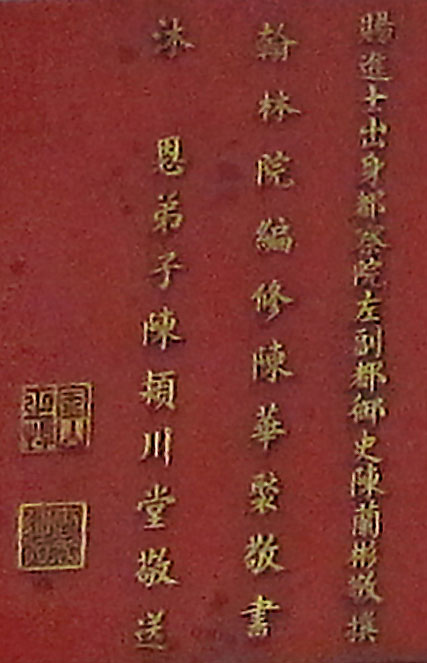 賜進士出身都察院左副都御史陳蘭彬敬撰
翰林院編修陳華褧敬書
沐恩弟子陳穎川堂敬送